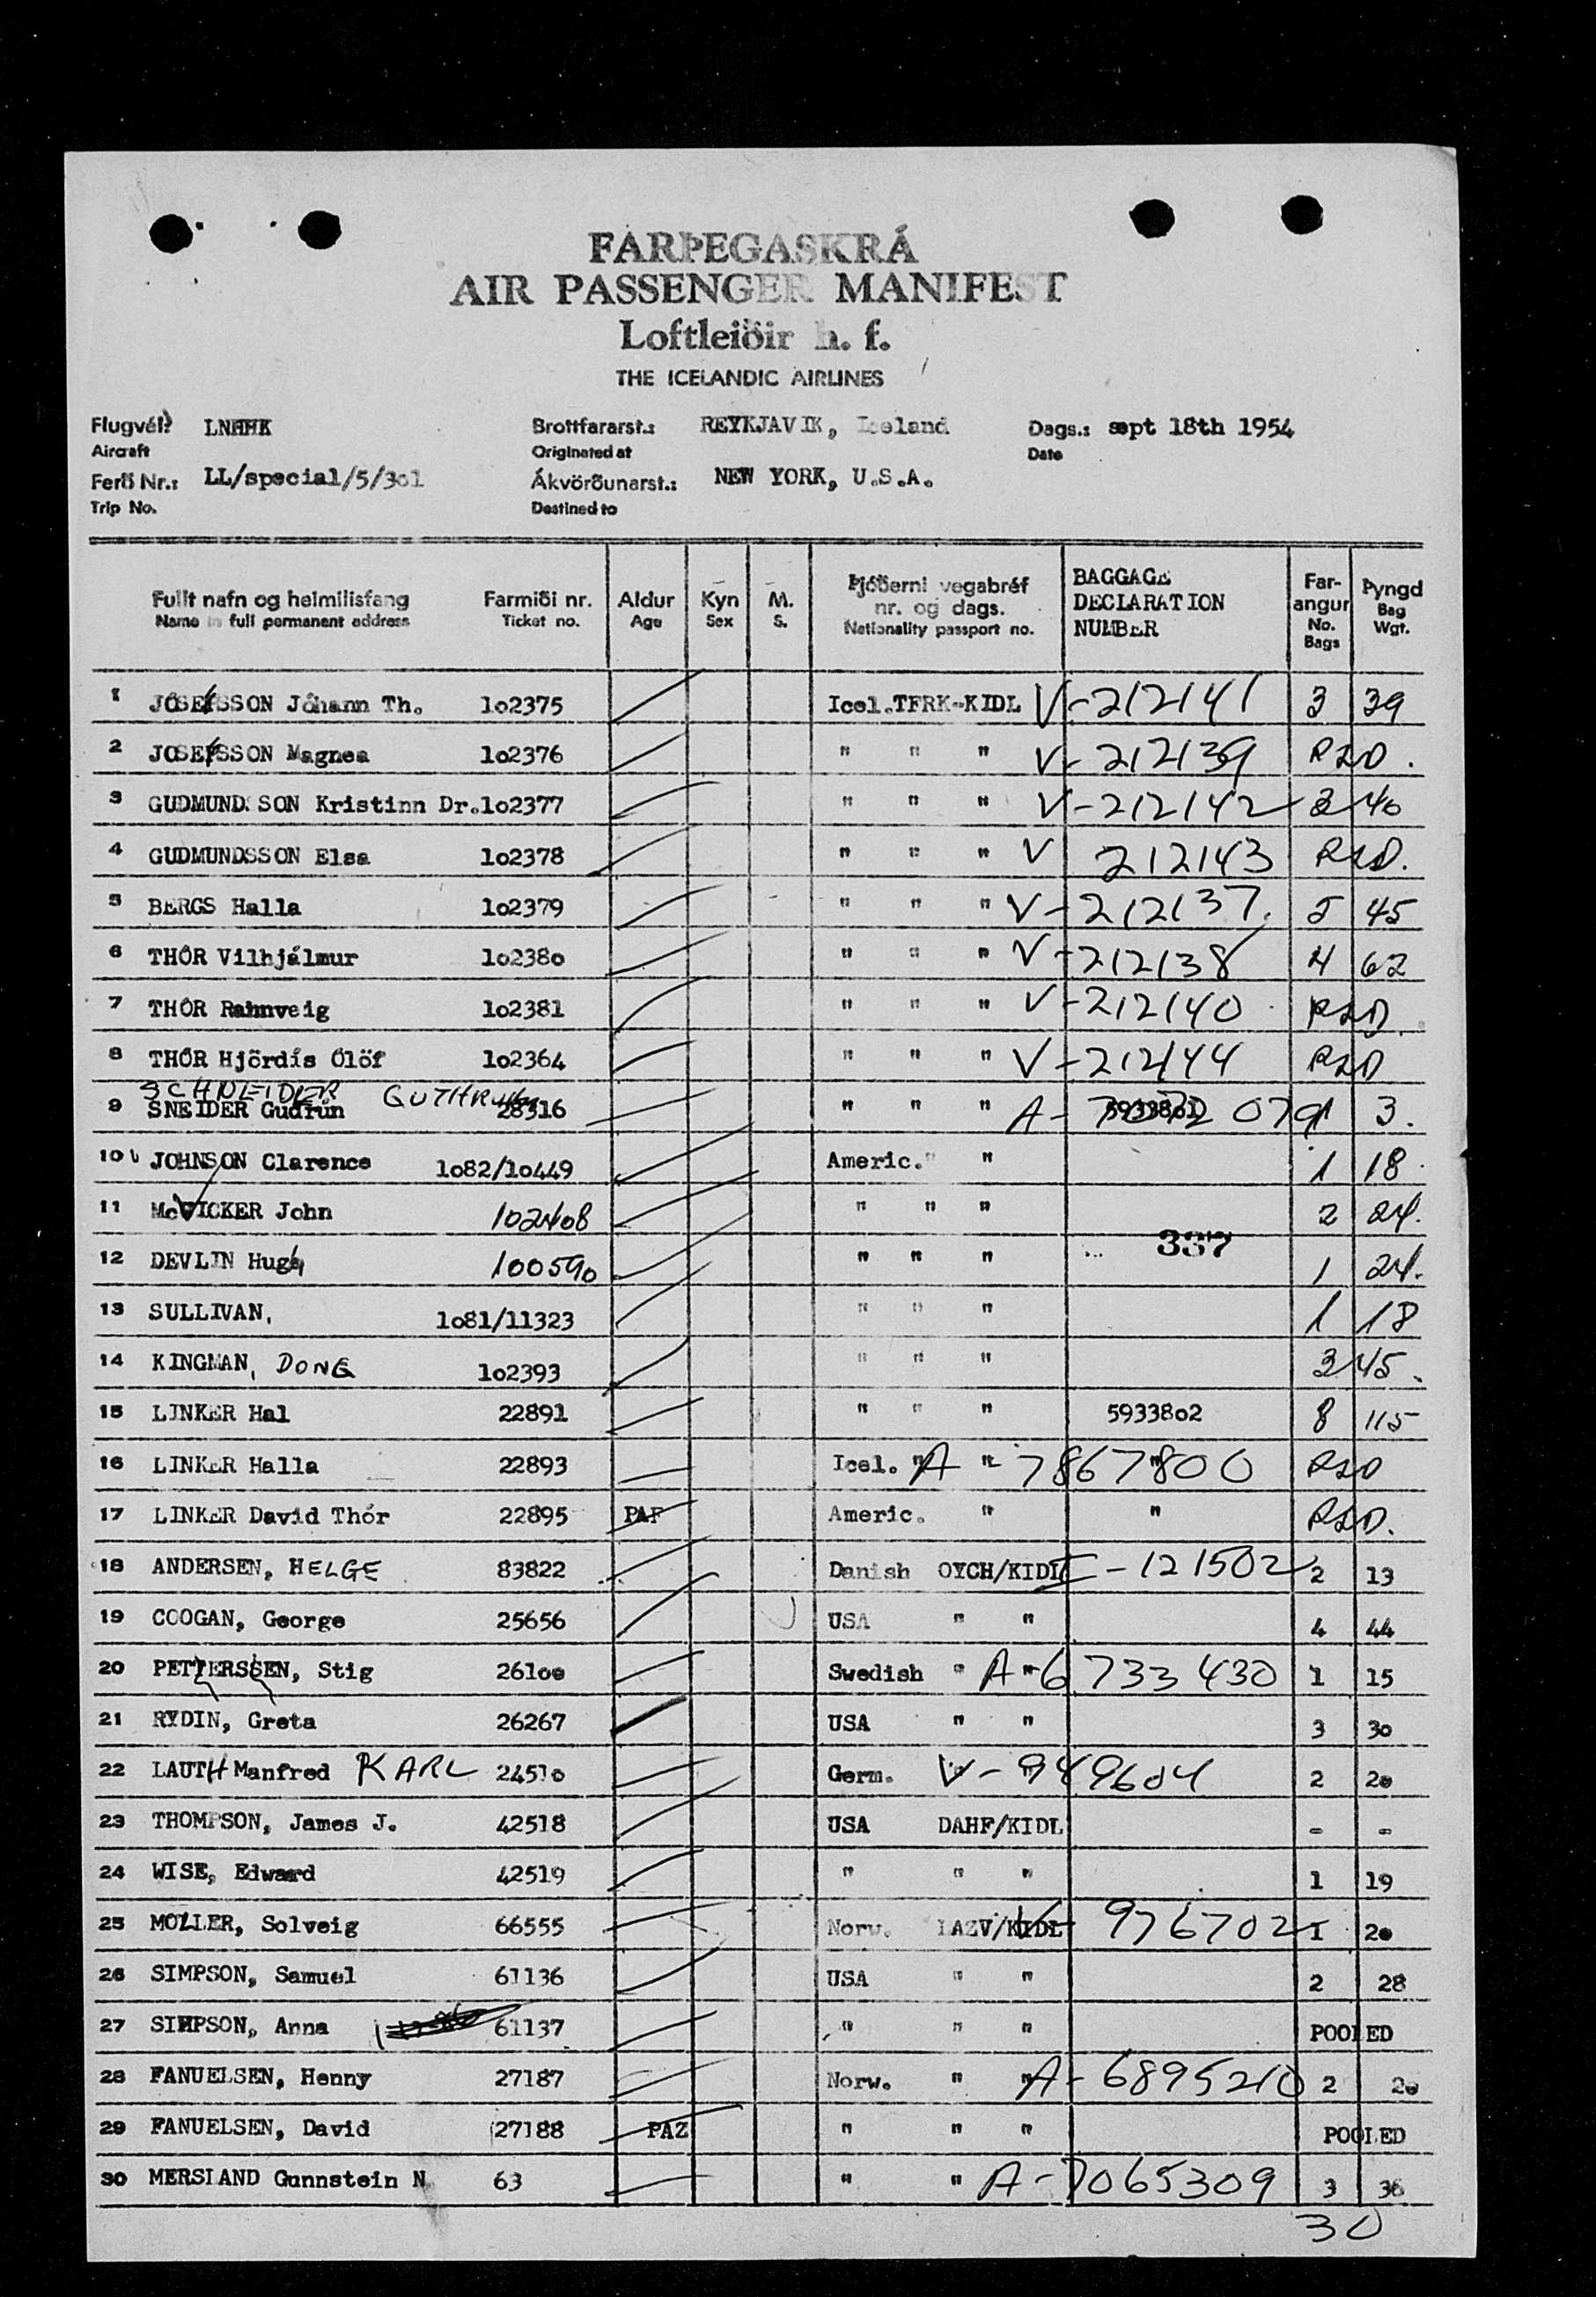 FARÞEGASKRÁ
AIR PASSENGER MANIFEST
Loftleiðir h. f.
THE ICELANDIC AIRLINES
Flugvél: LNHHK Brottfararst.: REYKJAVIK, Iceland Dags.: sept 18th 1954
Aircraft Originated at Date
Ferð Nr.: LL/special/5/3o1 Ákvörðunarst.: NEW YORK, U.S.A.
Trip No. Destined to
Fullt nafn og heimilisfang Farmiði nr. Aldur Kyn M. Þjóðerni vegabréf nr. og dags. BAGGAGE DECLARATION NUMBER Far-angur Þyngd
Name in full permanent address Ticket no. Age Sex S. Nationality passport no. No. Bags Bag Wgt.
1 JÓSEFSSON Jóhann Th. 1o2375 Icel.TFRK-KIDL V-212141 3 39
2 JOSEFSSON Magnea 1o2376 " " " V-212139 PLD.
3 GUDMUNDSSON Kristinn Dr.1o2377 " " " V-212142 3 40
4 GUDMUNDSSON Elsa 1o2378 " " " V 212143 PLD.
5 BERGS Halla 1o2379 " " " V-212137. 5 45
6 THÓR Vilhjálmur 1o238o " " " V-212138 4 62
7 THÓR Rannveig 1o2381 " " " V-212140 PLD
8 THÓR Hjördís Ólöf 1o2364 " " " V-212144 PLD
SCHNEIDER GUTHRUN
9 SNEIDER Gudrún 28316 " " " A- 59338o1 1 3.
10 JOHNSON Clarence 1o82/1o449 Americ." " 1 18
11 McVICKER John 102408 " " " 2 24.
12 DEVLIN Hugh 100590 " " " 337 1 24.
13 SULLIVAN, 1o81/11323 " " " 1 18
14 KINGMAN, DONG 1o2393 " " " 3 45.
15 LINKER Hal 22891 " " " 59338o2 8 115
16 LINKER Halla 22893 Icel. " " A-7867800 " PLD
17 LINKER David Thór 22895 PAF Americ. " " PLD.
18 ANDERSEN, HELGE 83822 Danish OYCH/KIDL I-121502 2 13
19 COOGAN, George 25656 USA " " 4 44
20 PETTERSSEN, Stig 261oo Swedish " " A-6733430 1 15
21 RYDIN, Greta 26267 USA " " 3 3o
22 LAUTH Manfred KARL 2451o Germ. " " V-949604 2 2o
23 THOMPSON, James J. 42518 USA DAHF/KIDL - -
24 WISE, Edward 42519 " " " 1 19
25 MOLLER, Solveig 66555 Norw. LAZV/KIDL V- 976702 1 2o
26 SIMPSON, Samuel 61136 USA " " 2 28
27 SIMPSON, Anna 61137 " " " POOLED
28 FANUELSEN, Henny 27187 Norw. " " A-6895210 2 2o
29 FANUELSEN, David 27188 PAZ " " " POOLED
30 MERSLAND Gunnstein N. 63 " " A-7065309 3 36
30